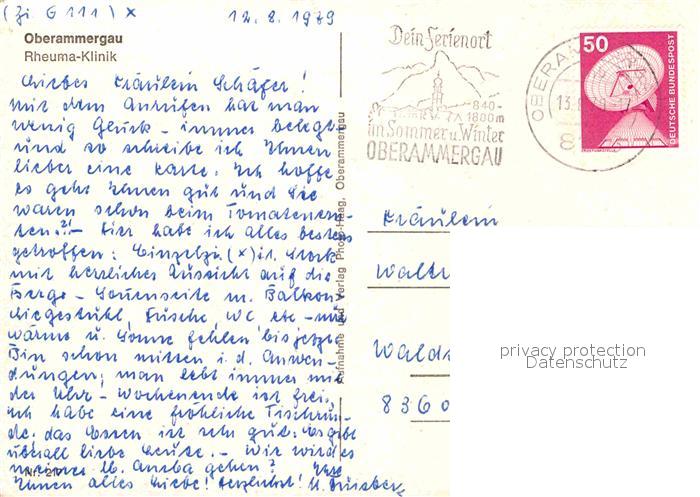 (Zi G 111) x 12.8.1979
Oberammergau
Rheuma-Klinik
Liebes Fräulein Schäfer!
Mit dem Anrufen hat man
wenig Glück - immer belegt
und so schreibe ich Ihnen
lieber eine Karte. Ich hoffe
es geht Ihnen gut und Sie
waren schon beim Tomatenern-
ten?! - Hier habe ich alles bestens
getroffen: Einzelzi. (x) i. Stock
mit herrlicher Aussicht auf die
Berge - Sonnenseite m. Balkon
Liegestuhl, Dusche, WC etc - nur
Wärme u. Sonne fehlen bis jetzt
Bin schon mitten i. d. Anwen-
dungen; man lebt immer mit
der Uhr - Wochenende ist frei,
ich habe eine fröhliche Tischrun-
de, das Essen ist sehr gut: es gibt
überall liebe Leute. - Wie wird es
meiner lb. gehen? Ihre
Ihnen alles Liebe! herzlichst!
Nr. 217
Aufnahme und Verlag Photo-Haag, Oberammergau
Dein Ferienort
840-
1800m
im Sommer u. Winter
OBERAMMERGAU
OBERAM
13.
8
50
DEUTSCHE BUNDESPOST
ERDFUNKSTELLE
Fräulein
Waltr
Waldr
8360
privacy protection
Datenschutz